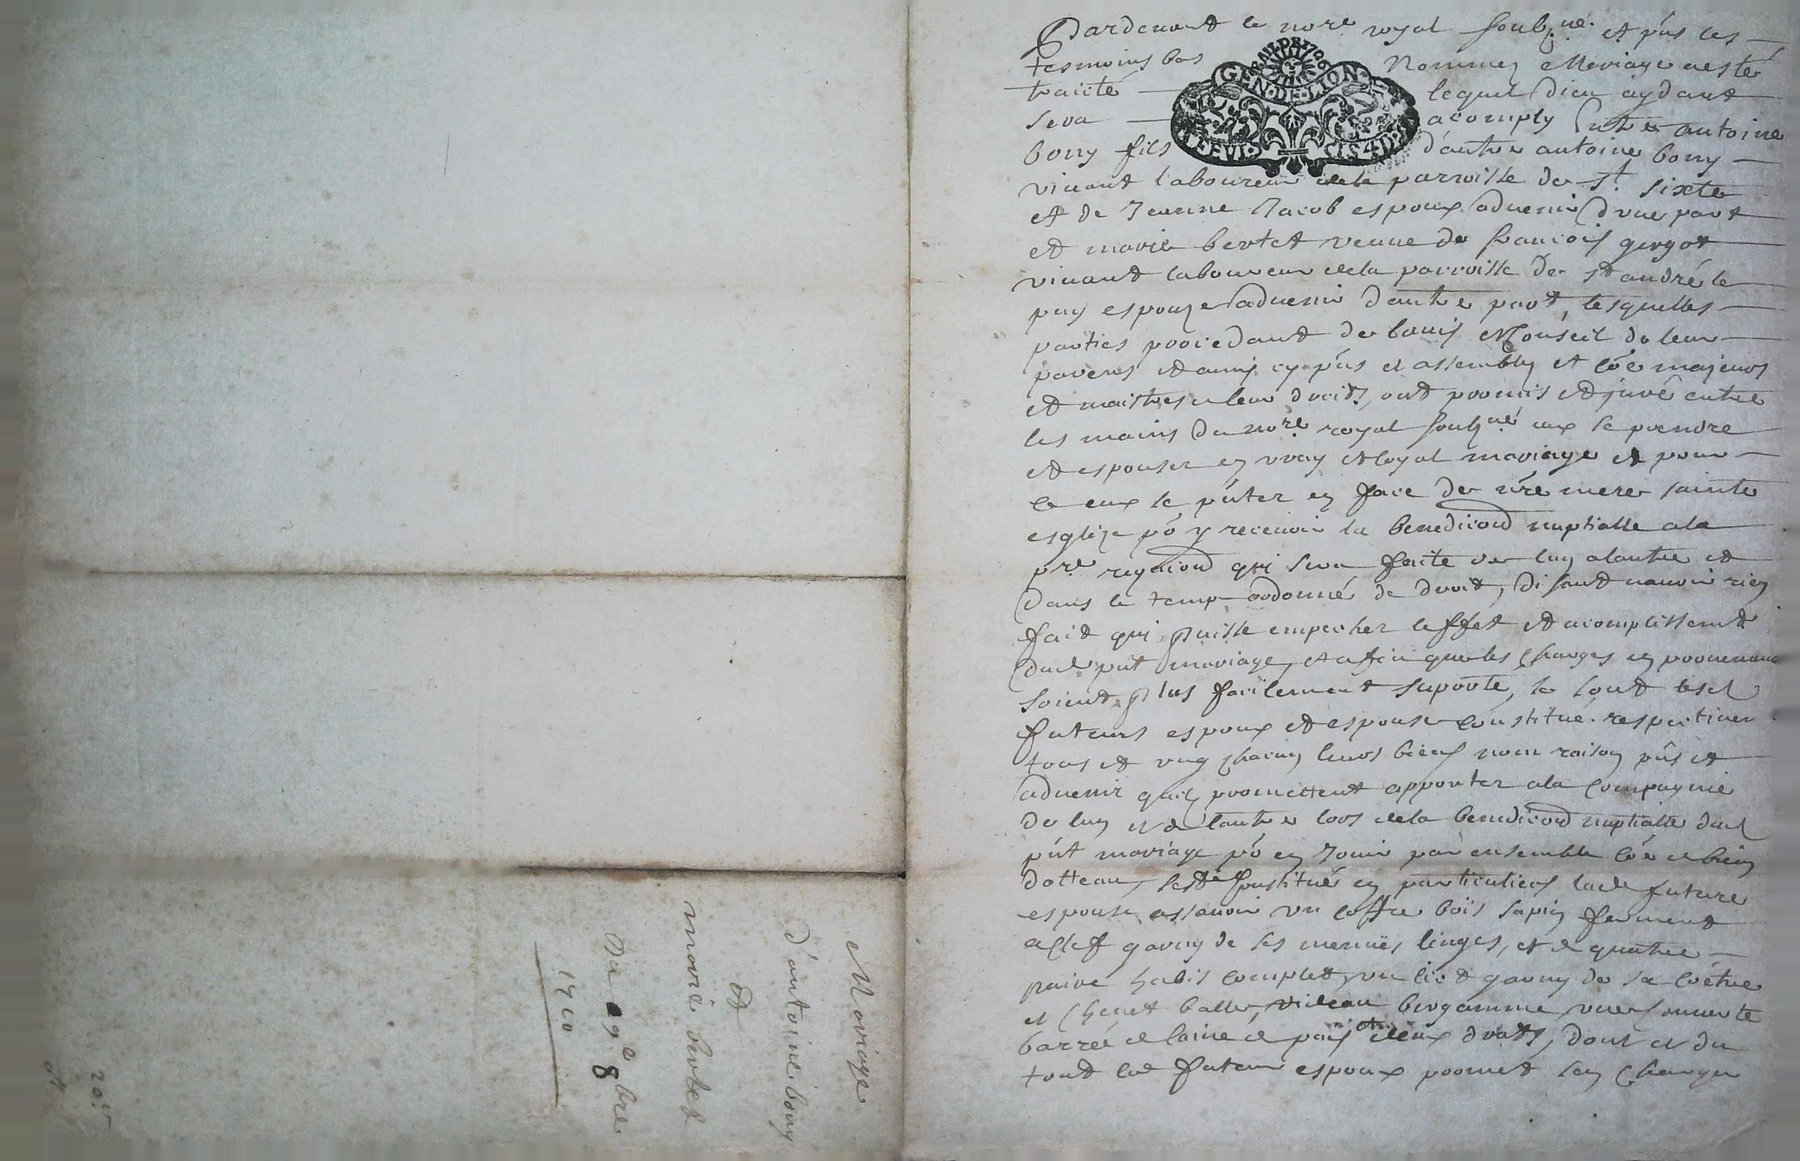 Pardevant le nore royal soubzné et pñs les
tesmoins bas Nommez Mariage a esté
traicté lequel Dieu aydant
sera acomply Entre antoine
bony fils d'autre antoine bony
vivant laboureur de la parroisse de St sixte
et de Jeanne Jacob espoux advenir d'une part
et marie bertet veuve de francois gergot
vivant laboureur de la parroisse de St andré le
puy espouze advenir d'autre part, lesquelles
parties procedant de lavis et Conseil de leur
parens et amis cy pñs et assemblez et côe majeurs
et maistres de leur droits, ont promis et juré entre
les mains du nore royal soubzné eux se prendre
et espouser en vray et loyal mariage et pour
ce eux se pñter en face de nre mere sainte
esglize pô y recevoir la benediction nuptialle a la
pre requion qui sera faite de lun a lautre et
dans le temp ordonné de droit, disant navoir rien
fait qui puisse empecher leffet et acomplissement
dud pñt mariage, et afin que les charges en provenant
soient plus facilement suporté, se sont lesd
futeurs espoux et espouse constitué respective
tous et ung chacun leurs biens nom raison pñs et
advenir quils promettent apporter a la compagnie
de lun et de lautre lors de la benediction nuptialle dud
pñt mariage pô en Jouir par ensemble côe de bien
dotteau, sest constitué en particulier lade future
espouse assavoir un coffre bois sapin fermant
a clef garny de ses menues linges, et de quatre
paire habis complet, un lict garny de sa coétre
et Chevet balle, rideau bergamme, une couverte
barrée de laine de pais et deux draps, dont et du
tout led futeur espoux promet sen charger
GEN·DE·LION
Mariage
d'antoine bony
et
marie bertet
Du 8 9bre
1710
20s